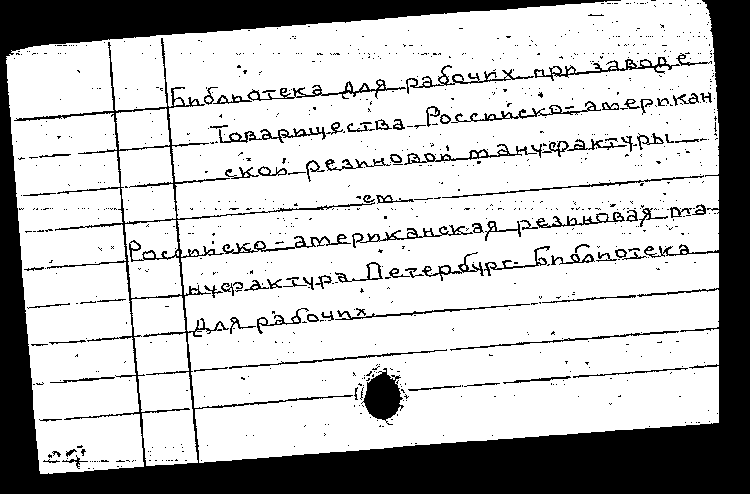 Библиотека для рабочих при заводе
Товарищества Российско-американ
ской резиновой мануфактуры
см.
Российско-американская резиновая ма-
нуфактура. Петербург. Библиотека
для рабочих.